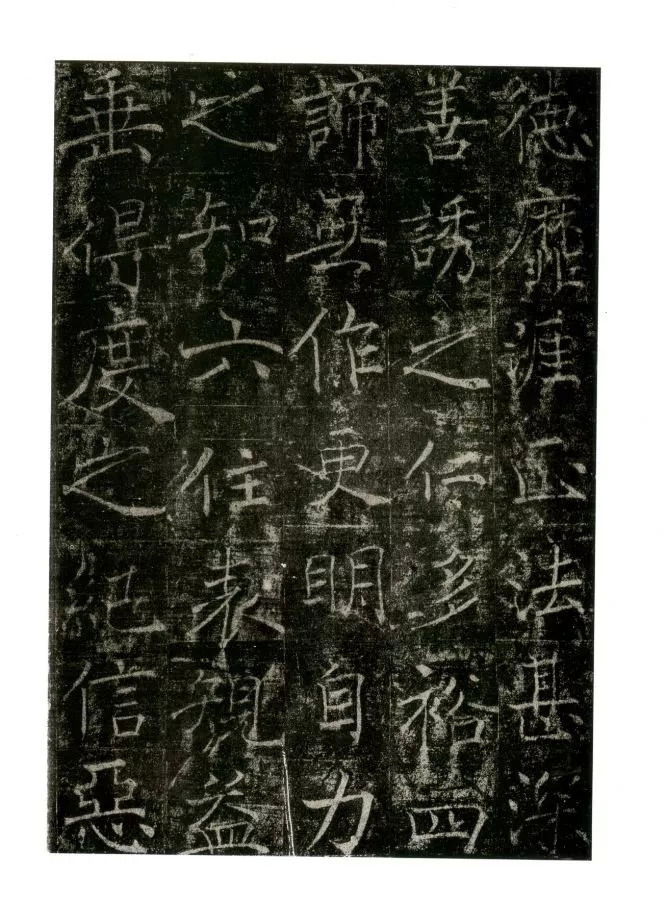 德靡涯正法甚深
善誘之仁多裕四
諦無作更明自力
之知六住表規益
垂得度之紀信惡